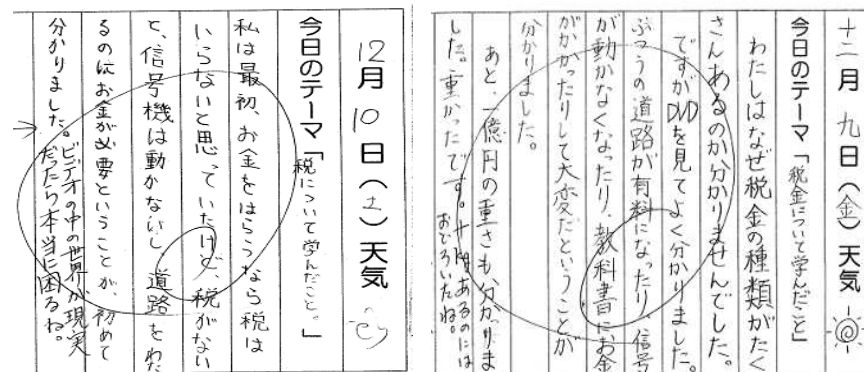 十二月 九日(金)天気
今日のテーマ「税金について学んだこと」
わたしはなぜ税金の種類がたく
さんあるのか分かりませんでした。
ですがDVDを見てよく分かりました。
ふつうの道路が有料になったり、信号
が動かなくなったり、教科書にお金
がかかったりして大変だということが
分かりました。
あと、一億円の重さも分かりま
した。重かったです。
十kgあるのには
おどろいたね。
12月10日(土)天気
今日のテーマ「税について学んだこと。」
私は最初、お金をはらうなら税は
いらないと思っていたけど、税がない
と、信号機は動かないし道路をわた
るのにお金が必要ということが、初めて
分かりました。
ビデオの中の世界が現実
だったら本当に困るね。